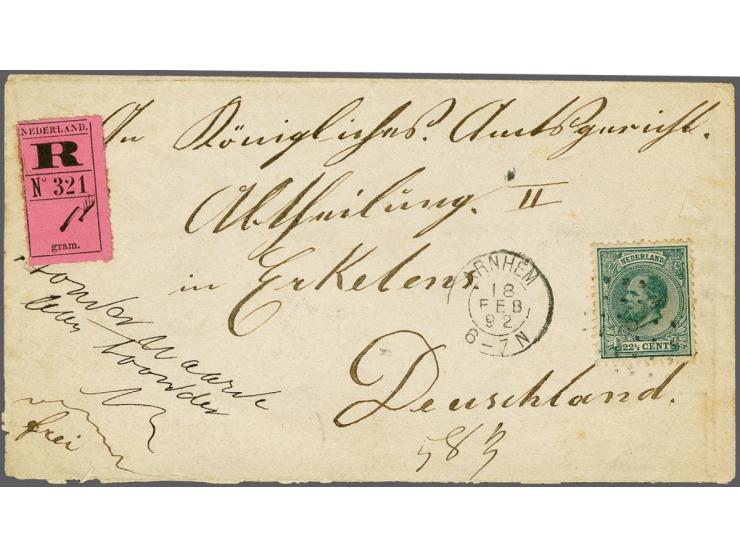 NEDERLAND.
R
No 321
gram.
An Königliches. Amtsgericht.
Abtheilung. II
in Erkelens
Deuschland.
ARNHEM
18
FEB
92
6-7 N
NEDERLAND
22½ CENT
zonder Waarde
frei
583